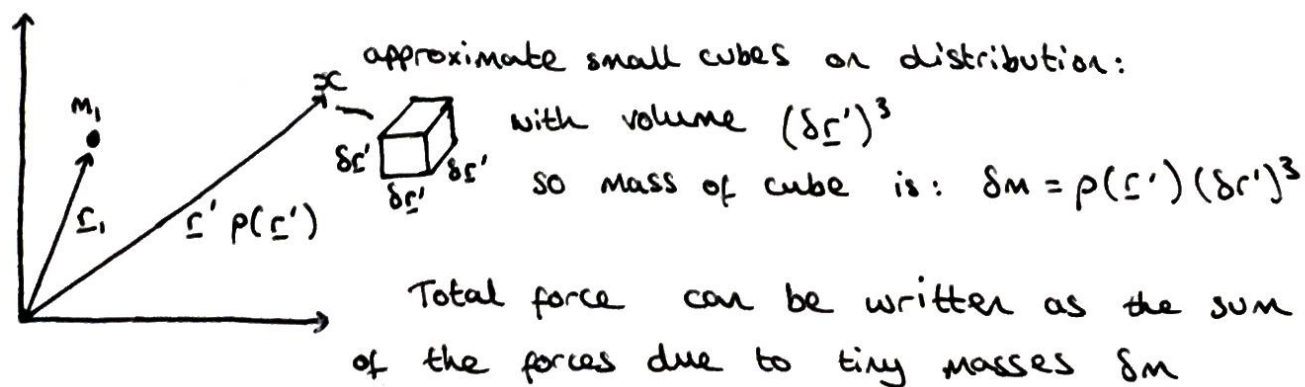 approximate small cubes on distribution:
x
m₁
with volume (δr̲')³
δr̲' δr̲' δr̲'
so mass of cube is: δm = ρ(r̲')(δr')³
r̲₁
r̲' ρ(r̲')
Total force can be written as the sum
of the forces due to tiny masses δm